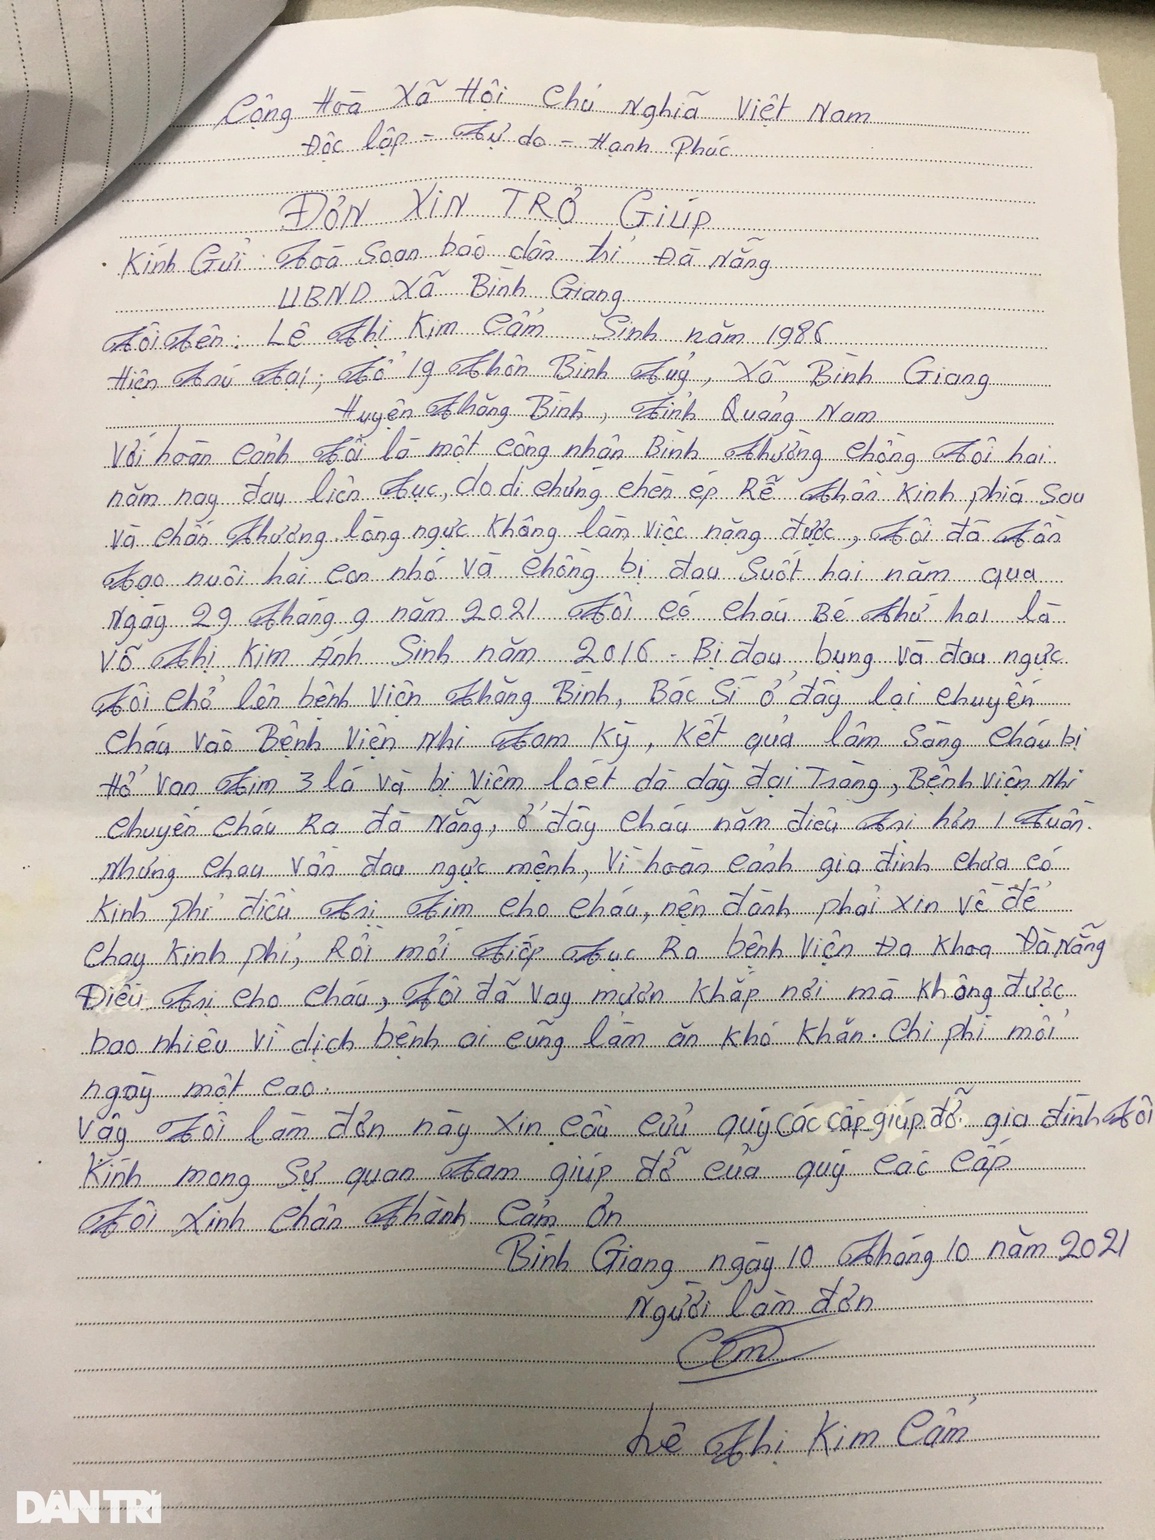 Cộng Hoà Xã Hội Chủ Nghĩa Việt Nam
Độc lập - Tự do - Hạnh Phúc
ĐƠN XIN TRỢ GIÚP
Kính Gửi: Toà Soạn báo dân trí Đà Nẵng
UBND Xã Bình Giang
Tôi Tên: Lê Thị Kim Cẩm Sinh năm 1986
Hiện Trú Tại; Tổ 19 Thôn Bình Tuý, Xã Bình Giang
Huyện Thăng Bình, Tỉnh Quảng Nam
Với hoàn cảnh Tôi là một công nhân Bình Thường chồng Tôi hai
năm nay đau liên Tục, do di chứng chèn ép Rễ Thần Kinh phía Sau
và chấn Thương lồng ngực không làm việc nặng được, Tôi đã Tần
Tạo nuôi hai con nhỏ và chồng bị đau Suốt hai năm qua
Ngày 29 Tháng 9 năm 2021 Tôi có cháu Bé Thứ hai là
Võ Thị Kim Ánh Sinh năm 2016 - Bị đau bụng và đau ngực
Tôi chở lên bệnh Viện Thăng Bình, Bác Sĩ ở đây lại chuyển
cháu vào Bệnh Viện Nhi Tam Kỳ, Kết quả lâm Sàng cháu bị
Hở Van Tim 3 lá và bị Viêm loét dà dày đại Tràng, Bệnh Viện Nhi
chuyển cháu Ra đà Nẵng, ở đây cháu nằm điều Trị hơn 1 Tuần.
Nhưng cháu vẫn đau ngực mệnh, Vì hoàn cảnh gia đình chưa có
Kinh phí điều Trị Tim cho cháu, nên đành phải xin về để
chạy Kinh phí, Rồi mới Tiếp Tục Ra bệnh Viện Đa Khoa Đà Nẵng
Điều Trị cho cháu, Tôi đã vay mượn khắp nơi mà không được
bao nhiêu vì dịch bệnh ai cũng làm ăn khó khăn. Chi phí mỗi
ngày một cao.
Vậy Tôi làm đơn này xin cầu cứu quý các cấp giúp đỡ gia đình Tôi
Kính mong Sự quan Tam giúp đỡ của quý các cấp
Tôi xinh chân Thành cảm ơn
Bình Giang ngày 10 Tháng 10 năm 2021
Người làm đơn
Cẩm
Lê Thị Kim Cẩm
DÂN TRÍ